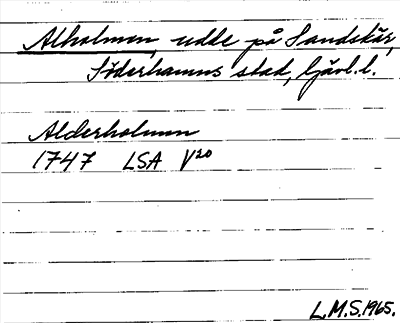 Alholmen, udde på Sandskär,
Söderhamns stad, Gävl. l.
Alderholmen
1747 LSA V20
L.M.S. 1965.